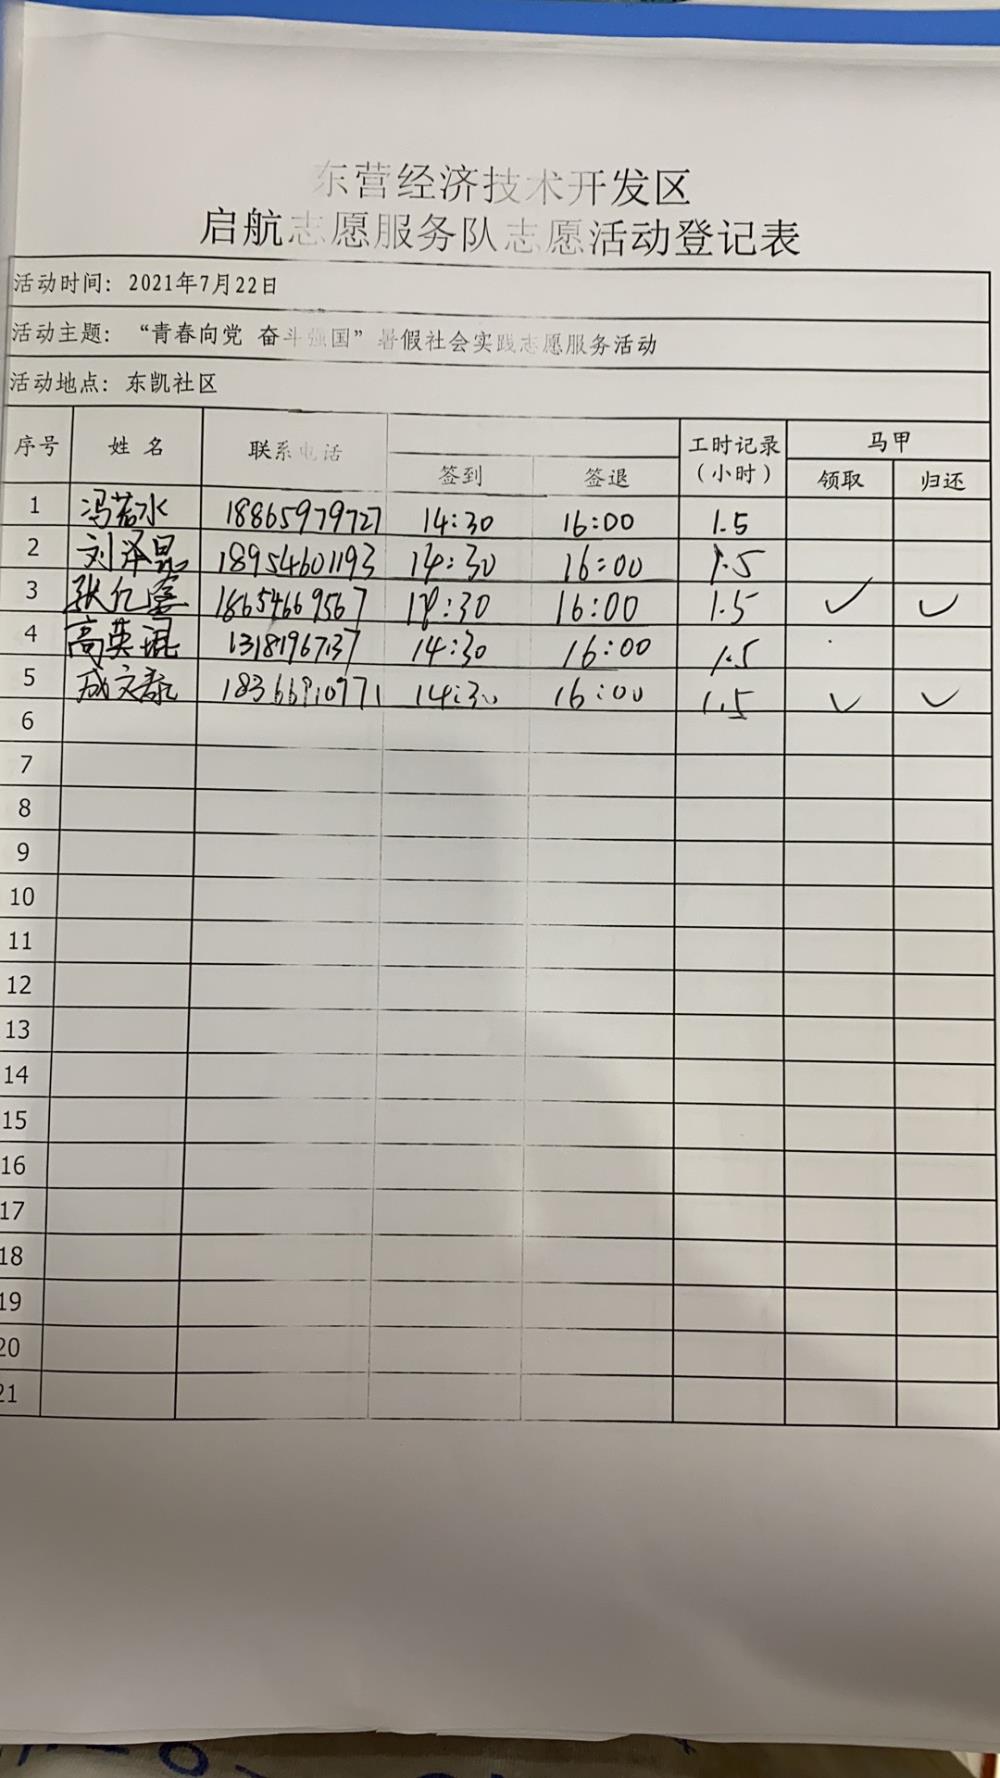 东营经济技术开发区
启航志愿服务队志愿活动登记表
活动时间：2021年7月22日
活动主题：“青春向党 奋斗强国”暑假社会实践志愿服务活动
活动地点：东凯社区
序号 姓名 联系电话 签到 签退 工时记录（小时） 马甲 领取 归还
1 冯若水 18865979727 14:30 16:00 1.5
2 刘泽昆 18954601193 14:30 16:00 1.5
3 张亿鑫 18654669567 14:30 16:00 1.5 ✓ ✓
4 高英琨 13181967137 14:30 16:00 1.5
5 成文 18366910771 14:30 16:00 1.5 ✓ ✓
6
7
8
9
10
11
12
13
14
15
16
17
18
19
20
21